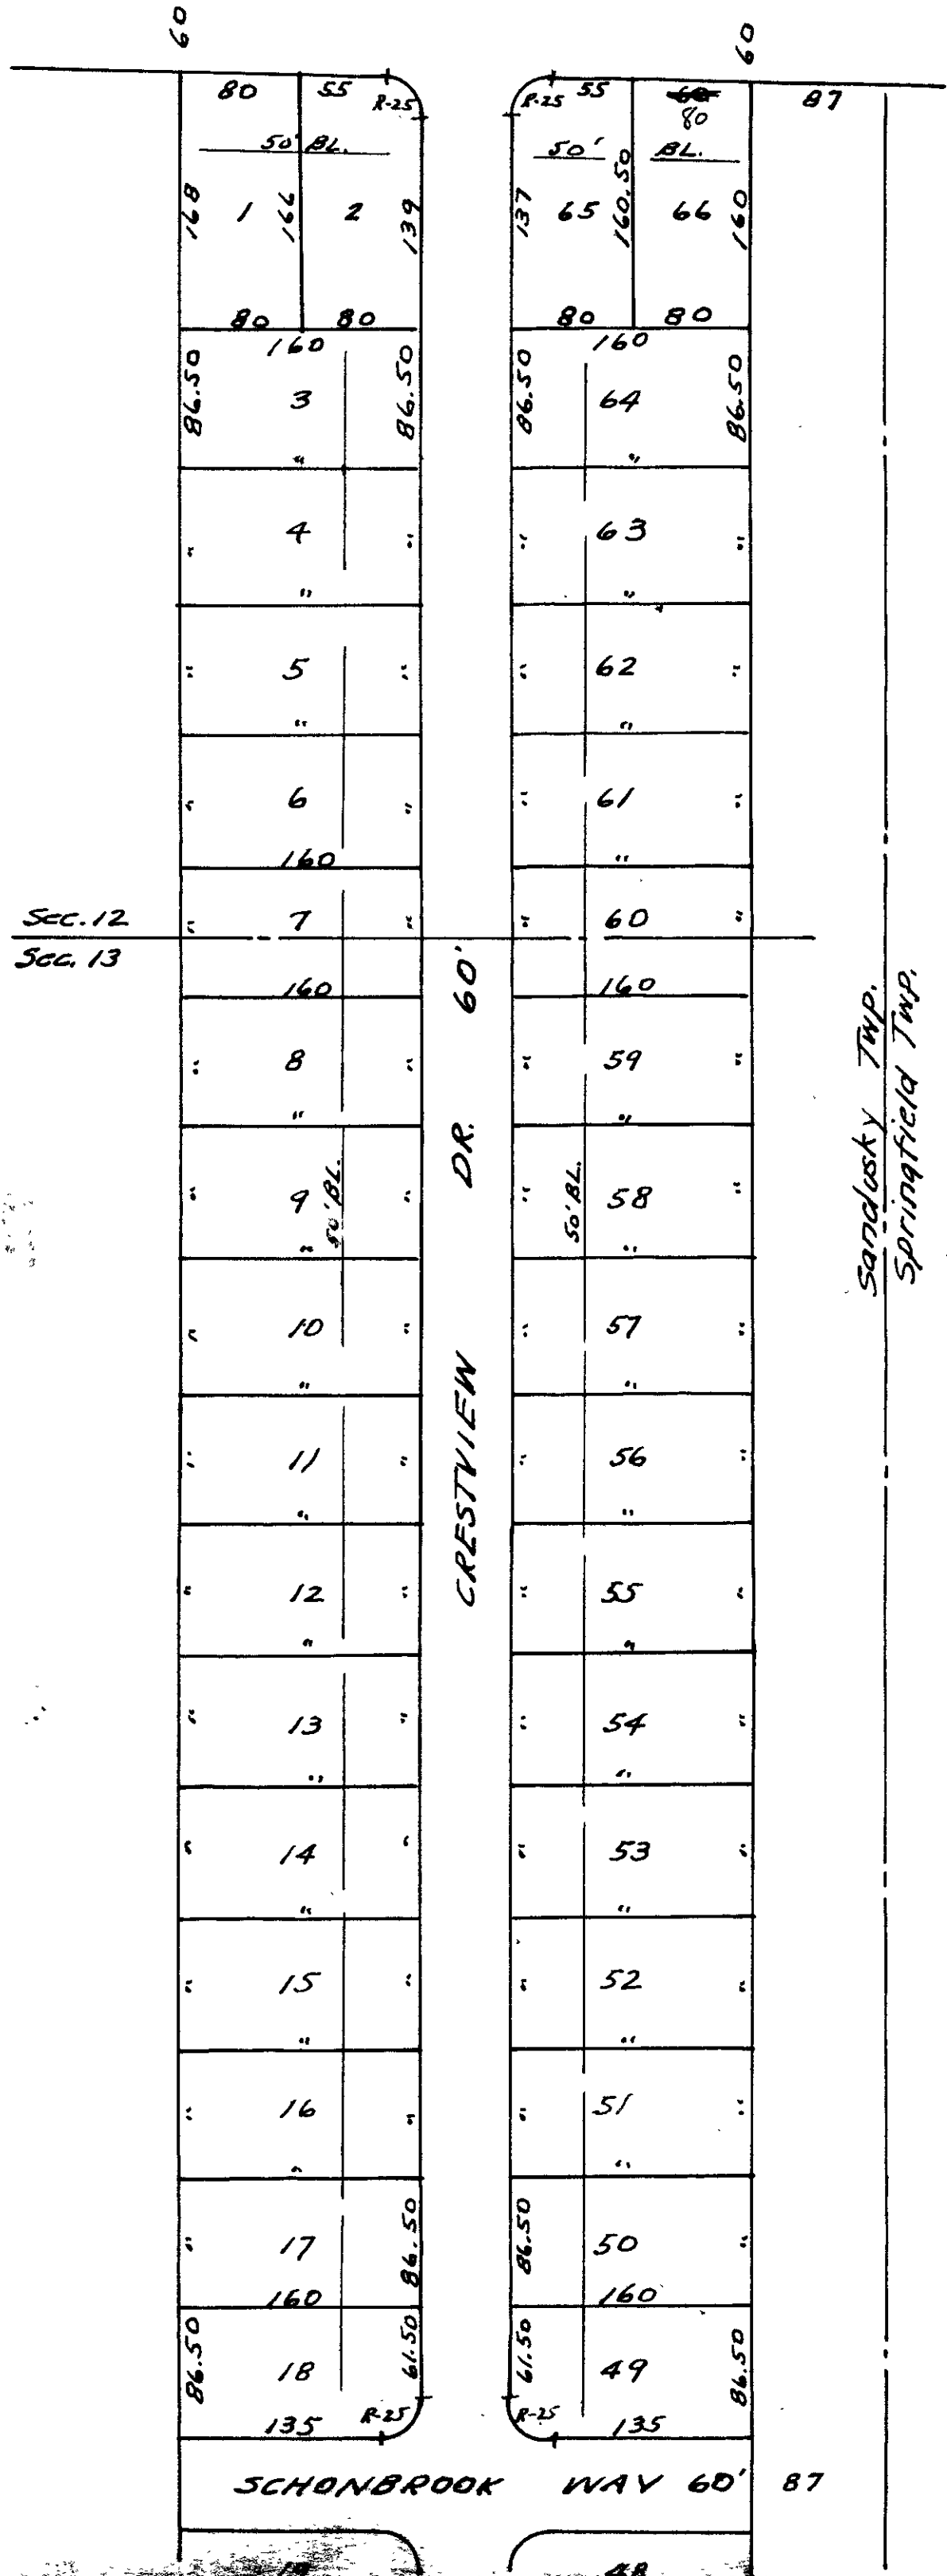 60 60
80 55 R-25 R-25 55 60 87
80
50' BL. 50' BL.
168 1 166 2 139 137 65 160.50 66 160
80 80 80 80
160 160
86.50 3 86.50 86.50 64 86.50
" "
" 4 " " 63 "
" "
" 5 " " 62 "
" "
" 6 " " 61 "
160 "
Sec. 12 " 7 " " 60 "
Sec. 13
160 160
" 8 " " 59 "
" "
" 9 " " 58 "
50' BL. 50' BL.
" "
" 10 " " 57 "
" "
" 11 " " 56 "
" "
" 12 " " 55 "
" "
" 13 " " 54 "
" "
" 14 " " 53 "
" "
" 15 " " 52 "
" "
" 16 " " 51 "
" "
" 17 86.50 86.50 50 "
160 160
86.50 18 61.50 61.50 49 86.50
135 R-25 R-25 135
CRESTVIEW DR. 60'
Sandusky Twp.
Springfield Twp.
SCHONBROOK WAY 60' 87
19 48